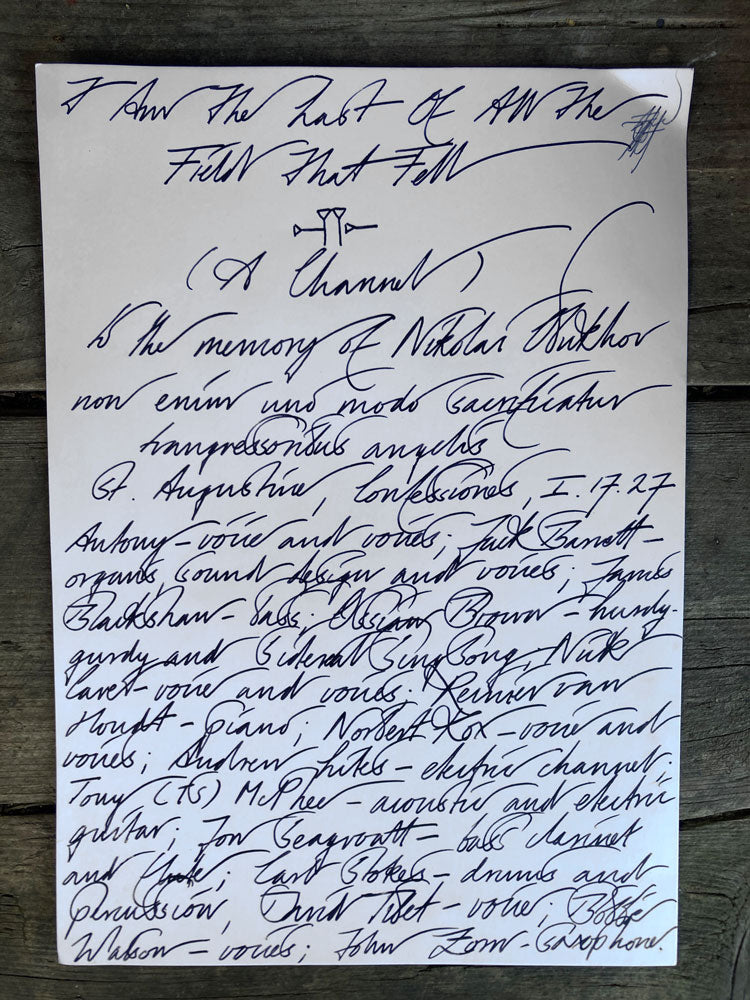 I Am The Last Of All The
Field That Fell
(A Channel)
to the memory of Nikolai
non enim uno modo sacrificatur
trangressoribus angelis
St. Augustine, Confessiones, I.17.27
Antony – voice and voices; Jack Barnett –
organs, sound design and voices; James
Blackshaw – bass; Ossian Brown – hurdy-
gurdy and Sidereal SingSong; Nick
Cave – voice and voices; Reinier van
Houdt – piano; Norbert Kox – voice and
voices; Andrew Liles – electric channel;
Tony (TS) McPhee – acoustic and electric
guitar; Jon Seagroatt – bass clarinet
and flute; Carl Stokes – drums and
percussion, David Tibet – voice; Bobbie
Watson – voices; John Zorn – saxophone.